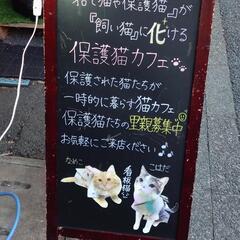 猫や保護猫』が
『飼い猫』に化ける
保護猫カフェ
保護された猫たちが
一時的に暮らす猫カフェ
保護猫たちの里親募集中
お気軽にご来店ください♪
なめこ
看板猫
こはだ